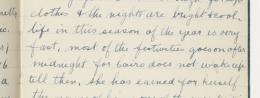 clothes & the nights are bright & cool.
life in this season of the year is very
fast, most of the festivities goes on after
midnight for Cairo does not wake up
till then, she has earned for herself